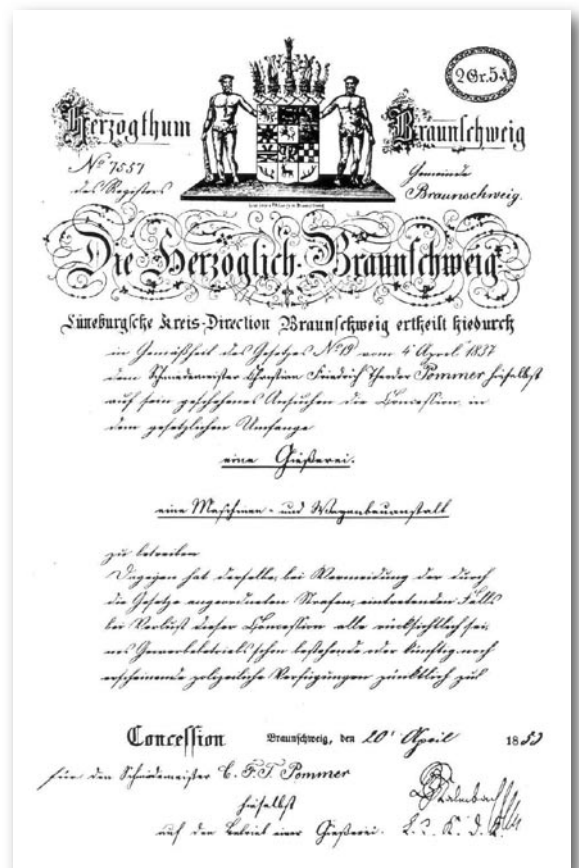 2 Gr. 5 ₰
Herzogthum Braunschweig
No 7557
des Registers
Gemeinde
Braunschweig.
Die Herzoglich-Braunschweig-
Lüneburgsche Kreis-Direction Braunschweig ertheilt hiedurch
in Gemäßheit des Gesetzes No 19 vom 4 April 1837
dem Schmiedemeister Christian Friedrich Theodor Pommer hieselbst
auf sein geschehenes Ansuchen die Concession in
dem gesetzlichen Umfange
eine Gießerei.
eine Maschinen- und Wagenbauanstalt
zu betreiben
Dagegen hat derselbe, bei Vermeidung der durch
die Gesetze angeordneten Strafen, eintretenden Falls
bei Verlust dieser Concession alle rücksichtlich sei,
nes Gewerbebetriebs schon bestehende oder künftig noch
erscheinende polizeiliche Verfügungen pünktlich
Concession Braunschweig, den 20t April 1853
für den Schmiedemeister C. F. T. Pommer
hieselbst
auf den Betrieb einer Gießerei.